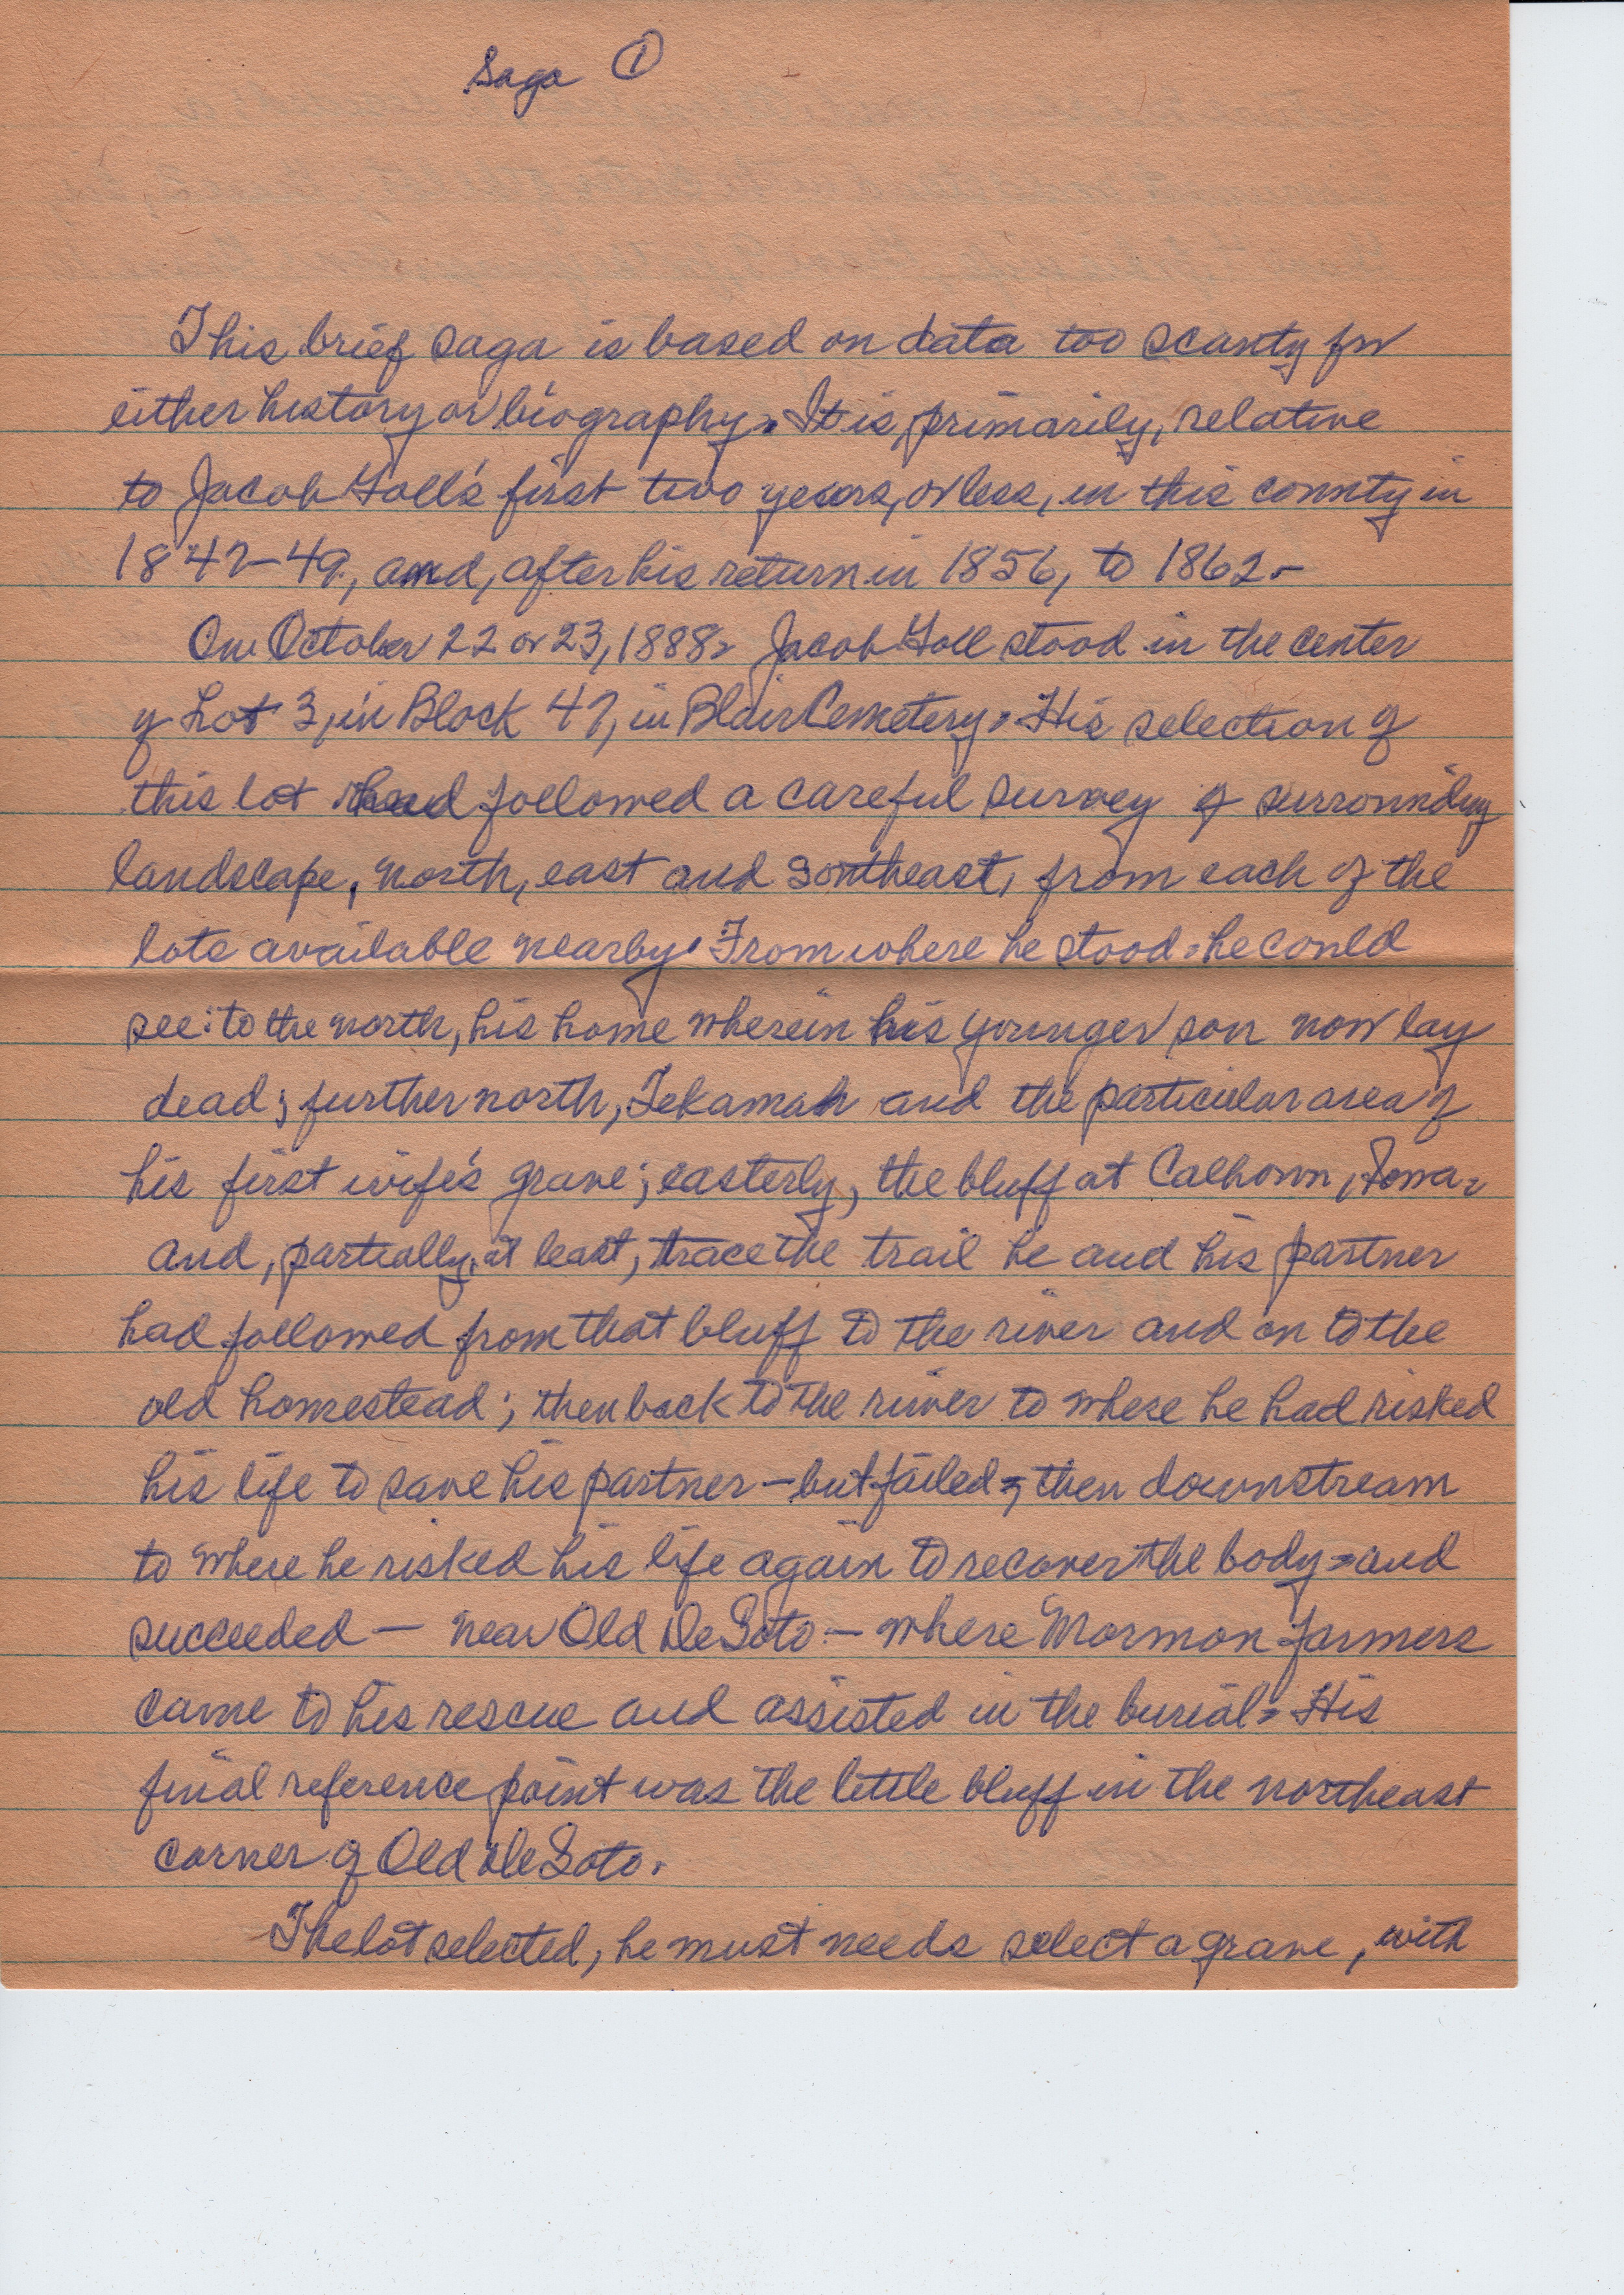 Saga ①
This brief saga is based on data too scanty for
either history or biography. It is, primarily, relative
to Jacob Goll's first two years, or less, in this county in
1847-49, and, after his return in 1856, to 1862.
On October 22 or 23, 1888, Jacob Goll stood in the center
of Lot 3, in Block 47, in Blair Cemetery. His selection of
this lot had followed a careful survey of surrounding
landscape, north, east and southeast, from each of the
lots available nearby. From where he stood he could
see: to the north, his home wherein his younger son now lay
dead; further north, Tekamah and the particular area of
his first wife's grave; easterly, the bluff at Calhoun, Iowa.
And, partially, at least, trace the trail he and his partner
had followed from that bluff to the river and on to the
old homestead; then back to the river to where he had risked
his life to save his partner - but failed; then downstream
to where he risked his life again to recover the body - and
succeeded — near Old DeSoto — where Mormon farmers
came to his rescue and assisted in the burial. His
final reference point was the little bluff in the northeast
corner of Old DeSoto.
The lot selected, he must needs select a grave, with